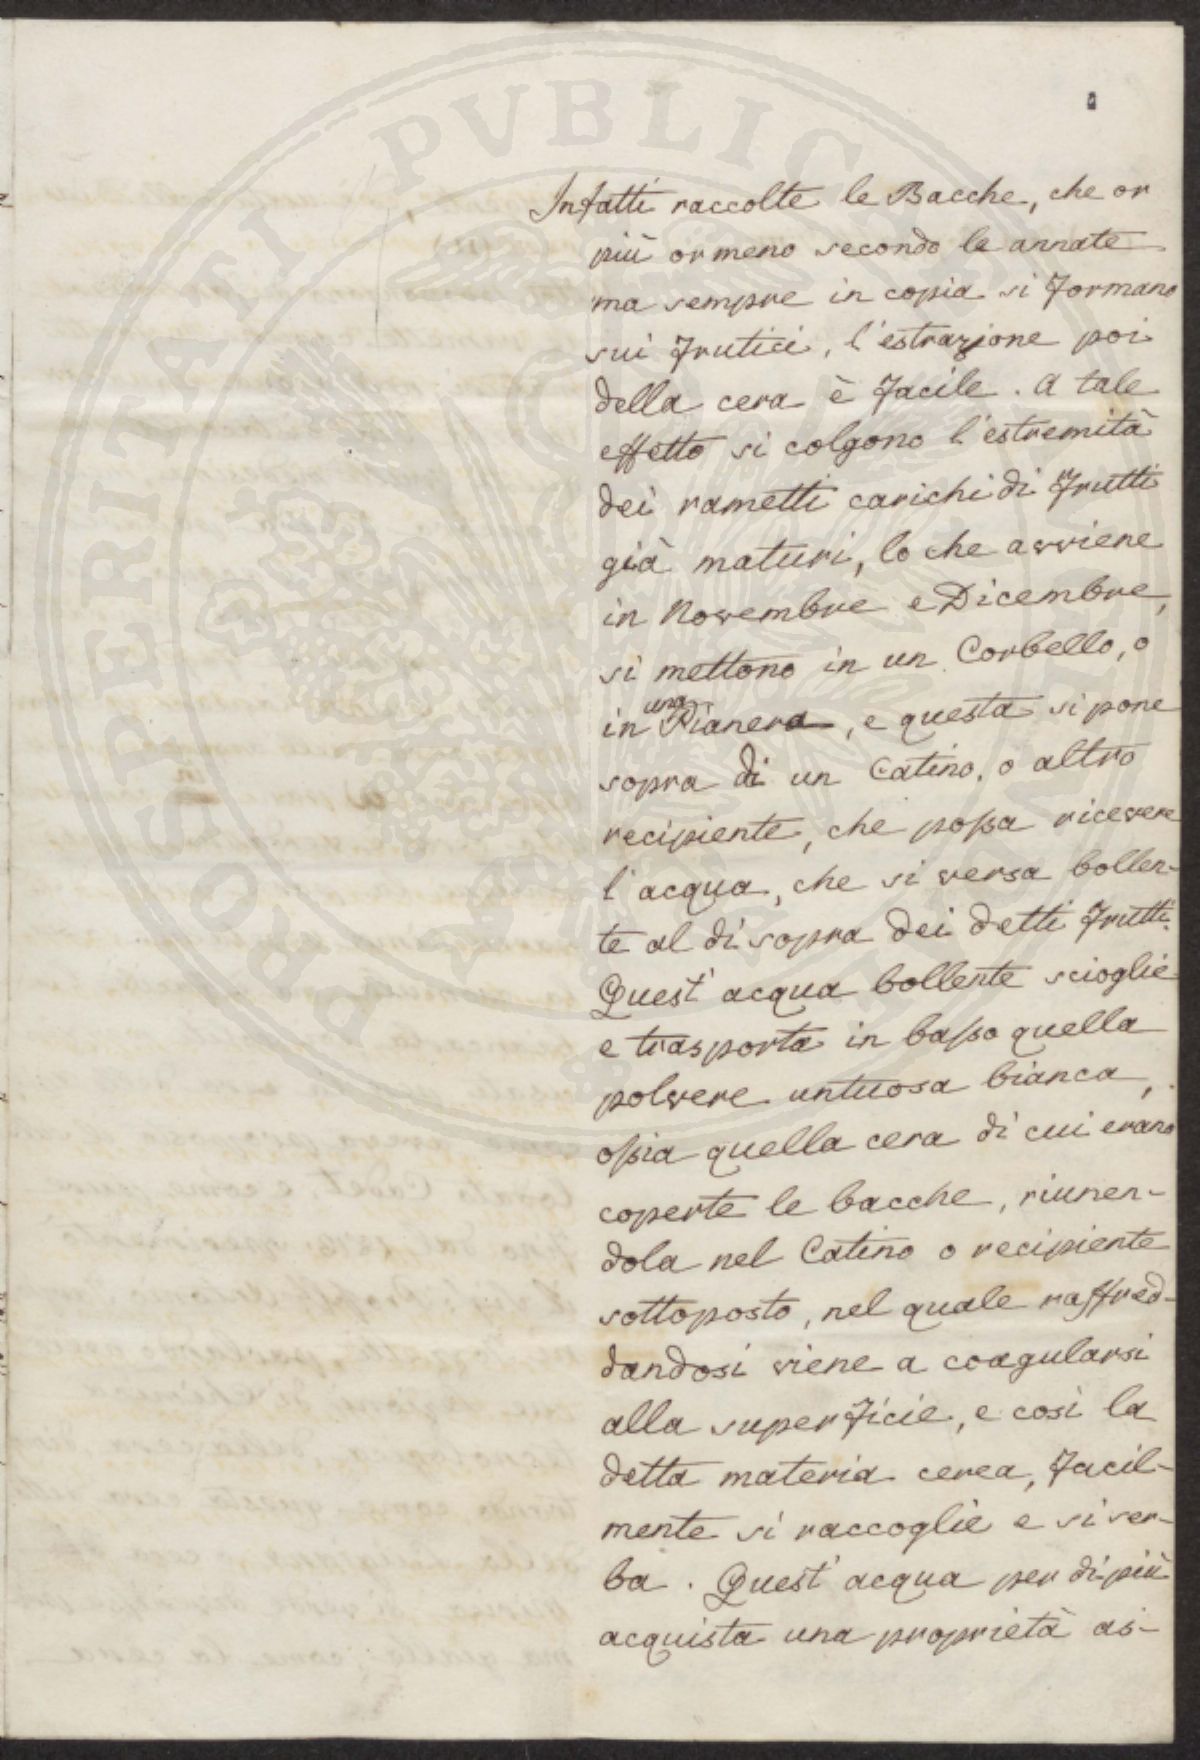 PROSPERITATI PVBLICAE
Infatti raccolte le Bacche, che or
più or meno secondo le annate
ma sempre in copia si formano
sui frutici, l'estrazione poi
della cera è facile. A tale
effetto si colgono l'estremità
dei rametti carichi di frutti
già maturi, lo che avviene
in Novembre e Dicembre,
si mettono in un Corbello, o
in una Pianera, e questa si pone
sopra di un Catino, o altro
recipiente, che possa ricevere
l'acqua, che si versa bollen-
te al di sopra dei detti frutti.
Quest'acqua bollente scioglie
e trasporta in basso quella
polvere untuosa bianca,
ossia quella cera di cui erano
coperte le bacche, riunen-
dola nel Catino o recipiente
sottoposto, nel quale raffred-
dandosi viene a coagularsi
alla superficie, e così la
detta materia cerea, facil-
mente si raccoglie e si ser-
ba. Quest'acqua per di più
acquista una proprietà as-